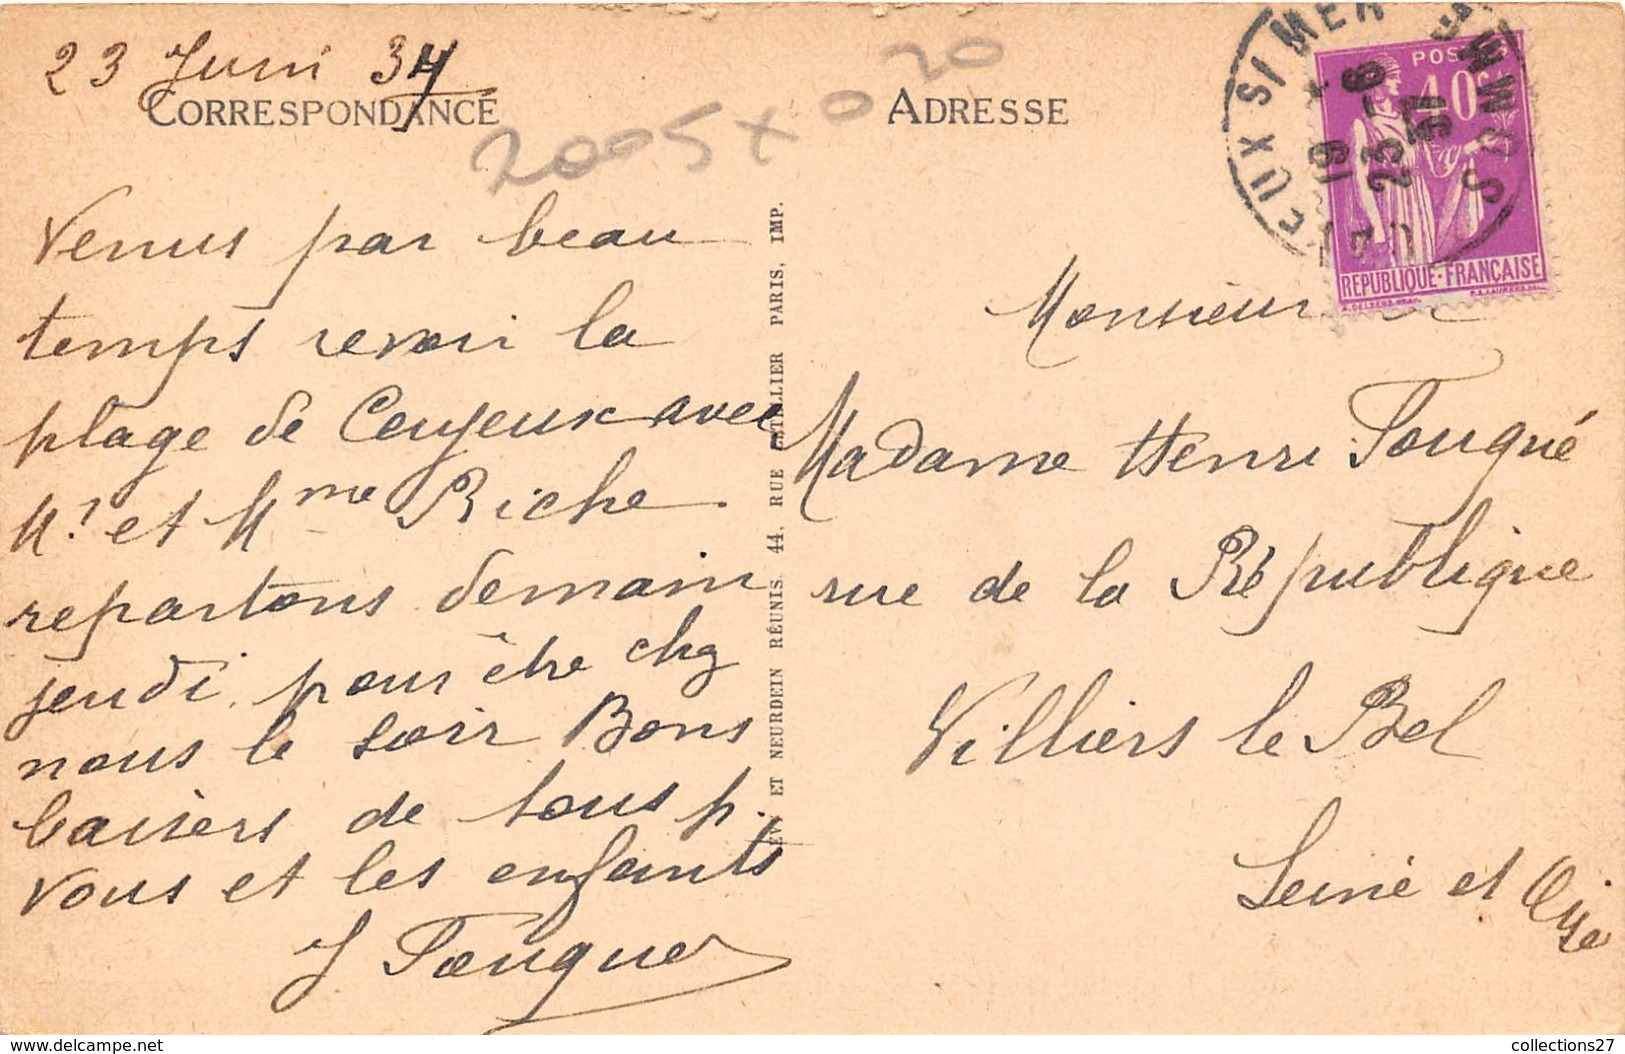 23 Juni 34
CORRESPONDANCE
2005 x 0 20
Venus par beau
temps revoir la
plage de Ceuyeux avec
Mr et Mme Riche
repartons demain
jeudi. pour être chz
nous le soir Bons
baisers de tous p.
vous et les enfants
J Fouque
LEVY ET NEURDEIN RÉUNIS. 44. RUE LETELLIER PARIS, IMP.
ADRESSE
CAYEUX S/ MER SOMME
19
23 - 6
POSTES
40c
REPUBLIQUE-FRANÇAISE
Monsieur et
Madame Henri Fouqué
rue de la République
Villiers le Bel
Seine et Oise
collections27
www.delcampe.net